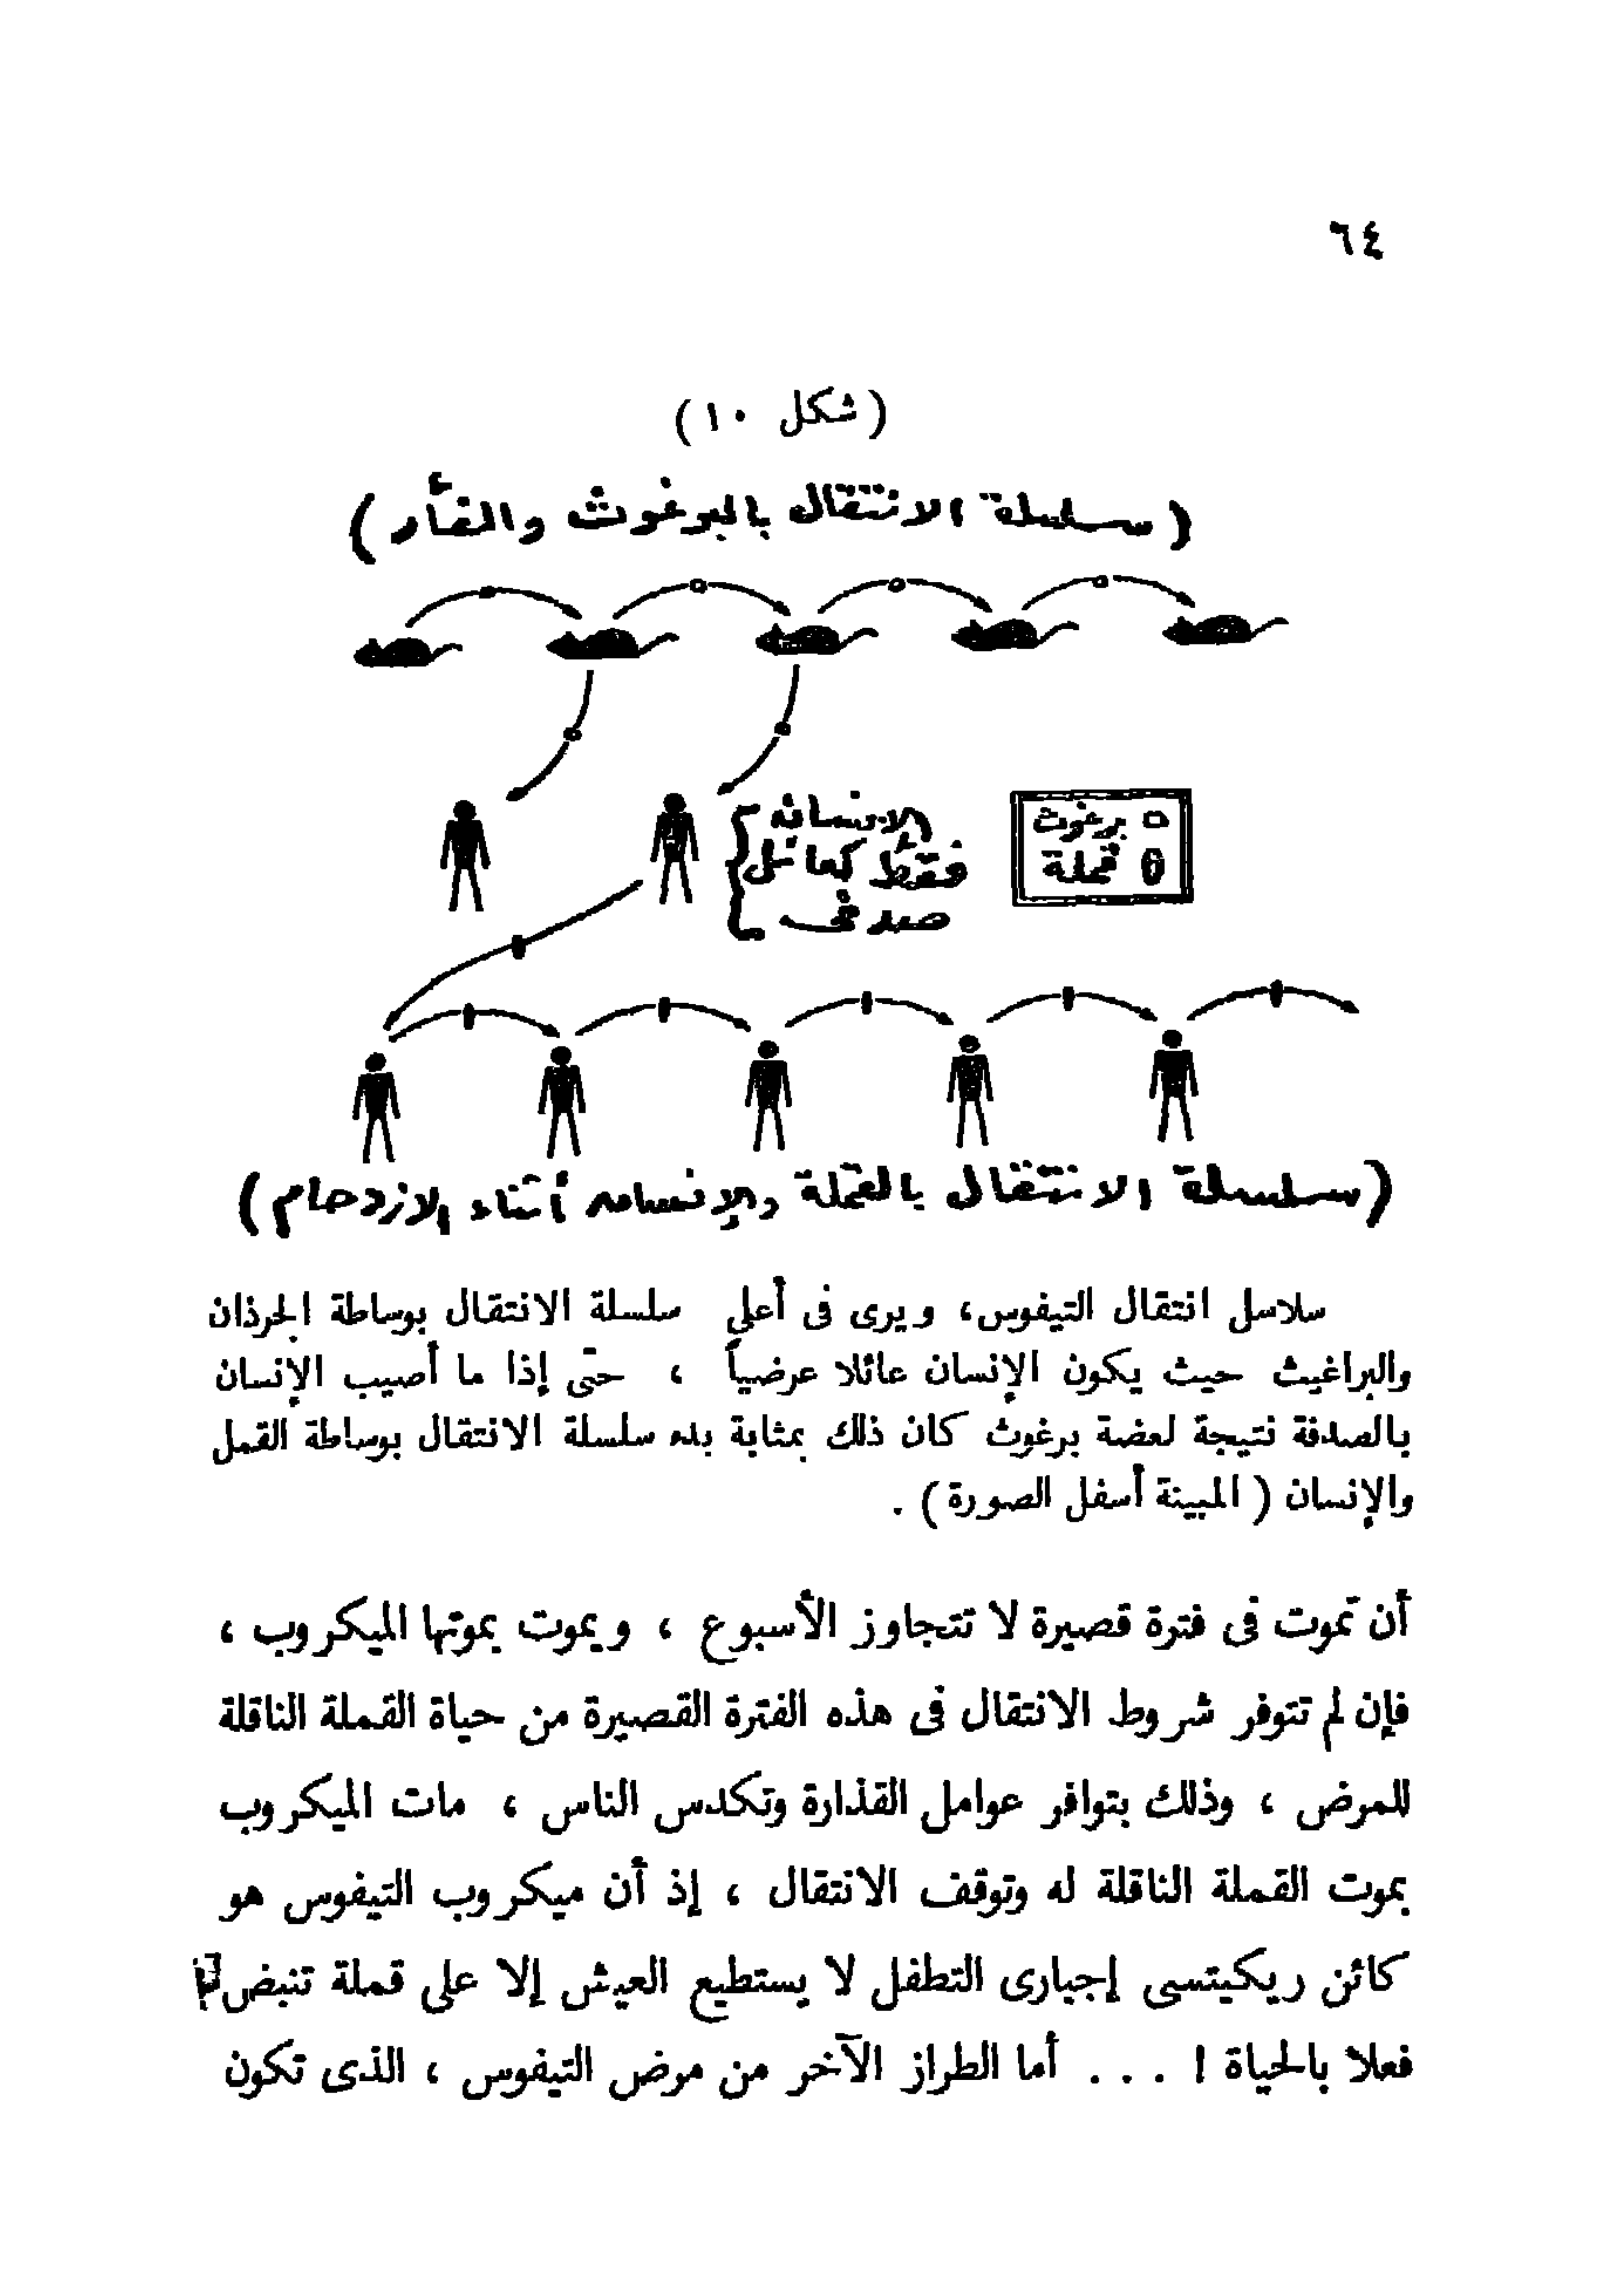 ٦٤
(شكل ١٠)
(سلسلة الانتقال بالبرغوث والفأر)
الإنسان
فقط كعائل
صدفى
برغوث
قملة
(سلسلة الانتقال بالقملة والإنسان أثناء الازدحام)
سلاسل انتقال التيفوس، ويرى فى أعلى سلسلة الانتقال بوساطة الجرذان
والبراغيث حيث يكون الإنسان عائلا عرضياً ، حتى إذا ما أصيب الإنسان
بالصدفة نتيجة لعضة برغوث كان ذلك بمثابة بدء سلسلة الانتقال بوساطة القمل
والإنسان ( المبينة أسفل الصورة ) .
أن تموت فى فترة قصيرة لا تتجاوز الأسبوع ، ويموت بموتها الميكروب ،
فإن لم تتوفر شروط الانتقال فى هذه الفترة القصيرة من حياة القملة الناقلة
للمرض ، وذلك بتوافر عوامل القذارة وتكدس الناس ، مات الميكروب
بموت القملة الناقلة له وتوقف الانتقال ، إذ أن ميكروب التيفوس هو
كائن ريكيتسى إجبارى التطفل لا يستطيع العيش إلا على قملة تنبض
فعلا بالحياة ! . . . أما الطراز الآخر من مرض التيفوس ، الذى تكون